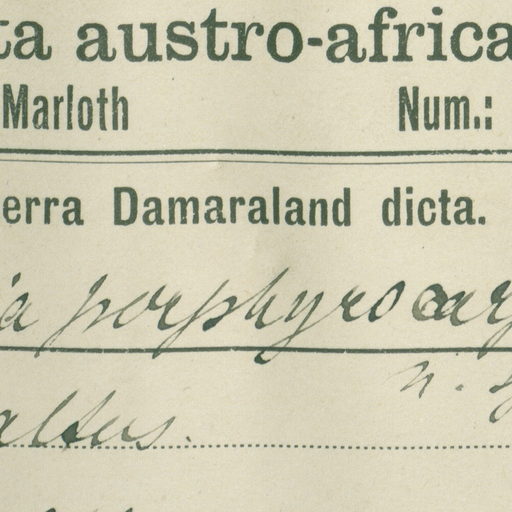 ta austro-africa
Marloth Num.:
erra Damaraland dicta.
ia porphyrocar
n. s
altus.